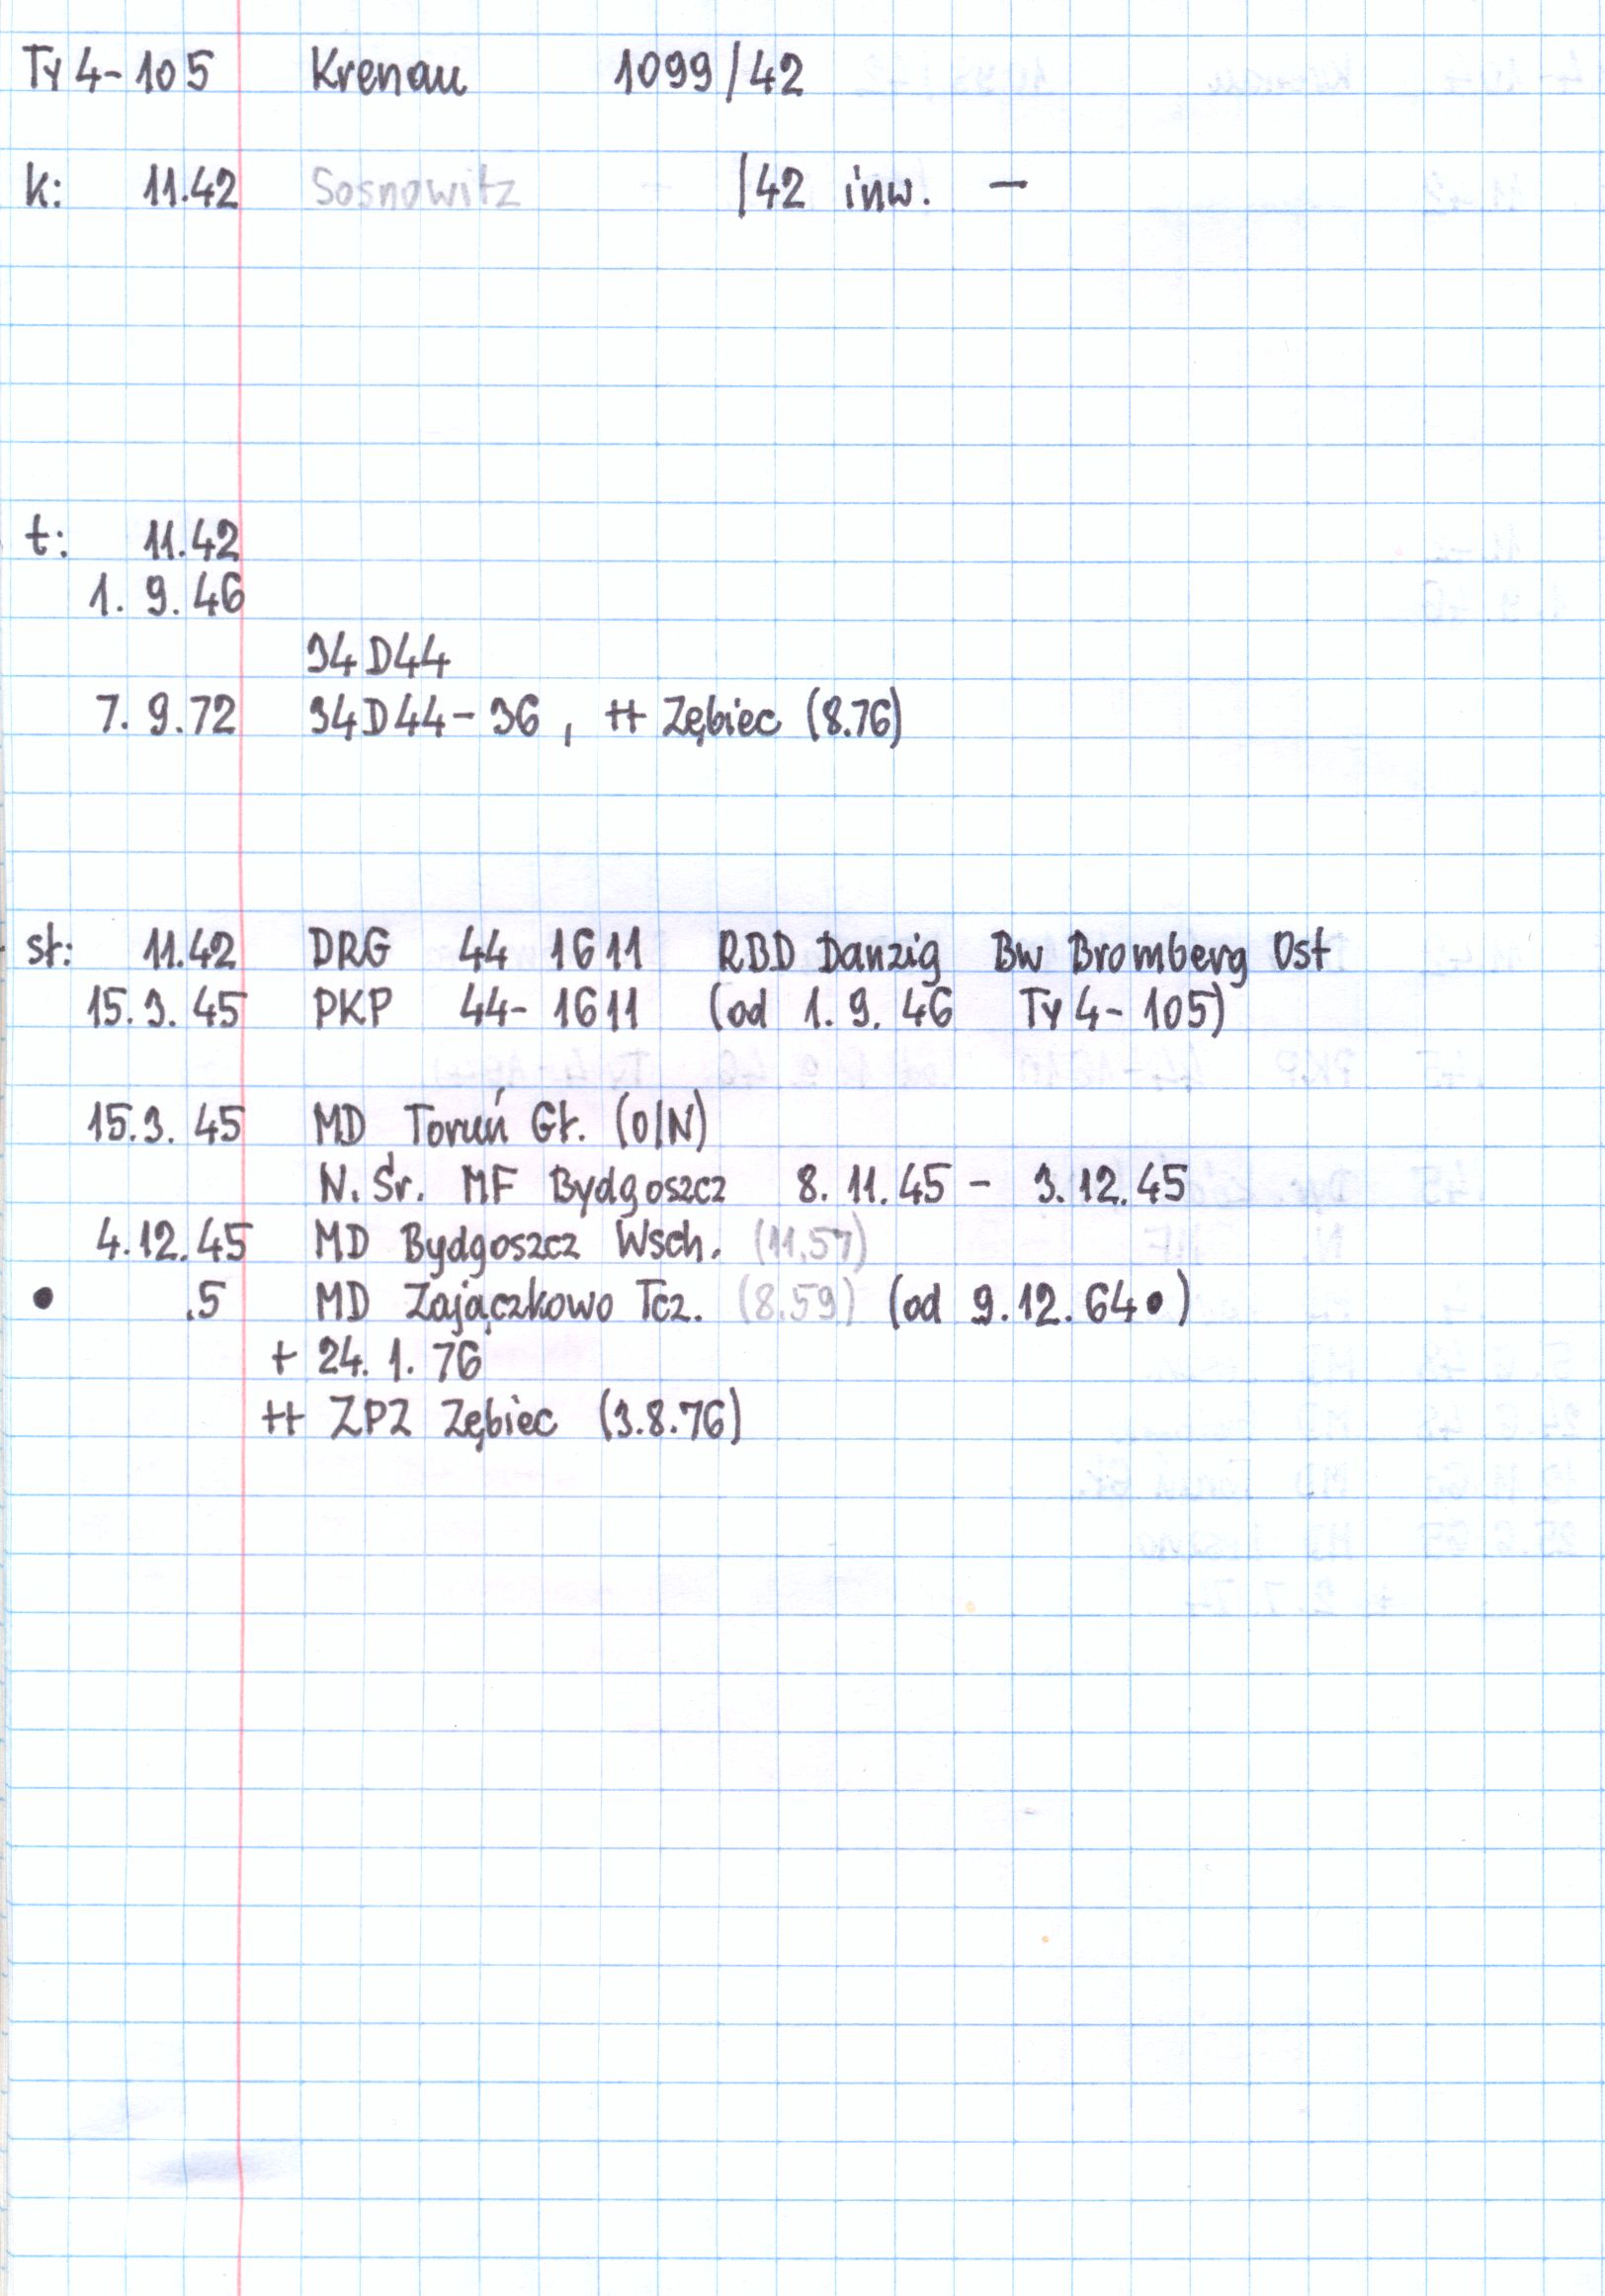 Ty 4-105 Krenau 1099/42
k: 11.42 Sosnowitz /42 inw. –
t: 11.42
1. 9. 46
34D44
7. 9. 72 34D44-36, ++ Zębiec (8.76)
st: 11.42 DRG 44 1611 RBD Danzig Bw Bromberg Ost
15.3. 45 PKP 44-1611 (od 1. 9. 46 Ty 4-105)
15.3. 45 MD Toruń Gł. (O/N)
N. Śr. MF Bydgoszcz 8. 11. 45 – 3.12.45
4.12.45 MD Bydgoszcz Wsch. (11.57)
• .5 MD Zajączkowo Tcz. (8.59) (od 9.12.64•)
+ 24. 1. 76
++ ZPZ Zębiec (3.8.76)